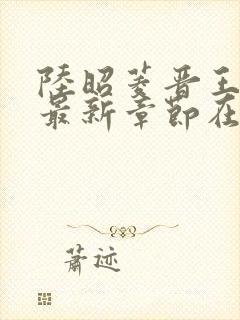 陸昭菱晋王
最新章節在
萧迹